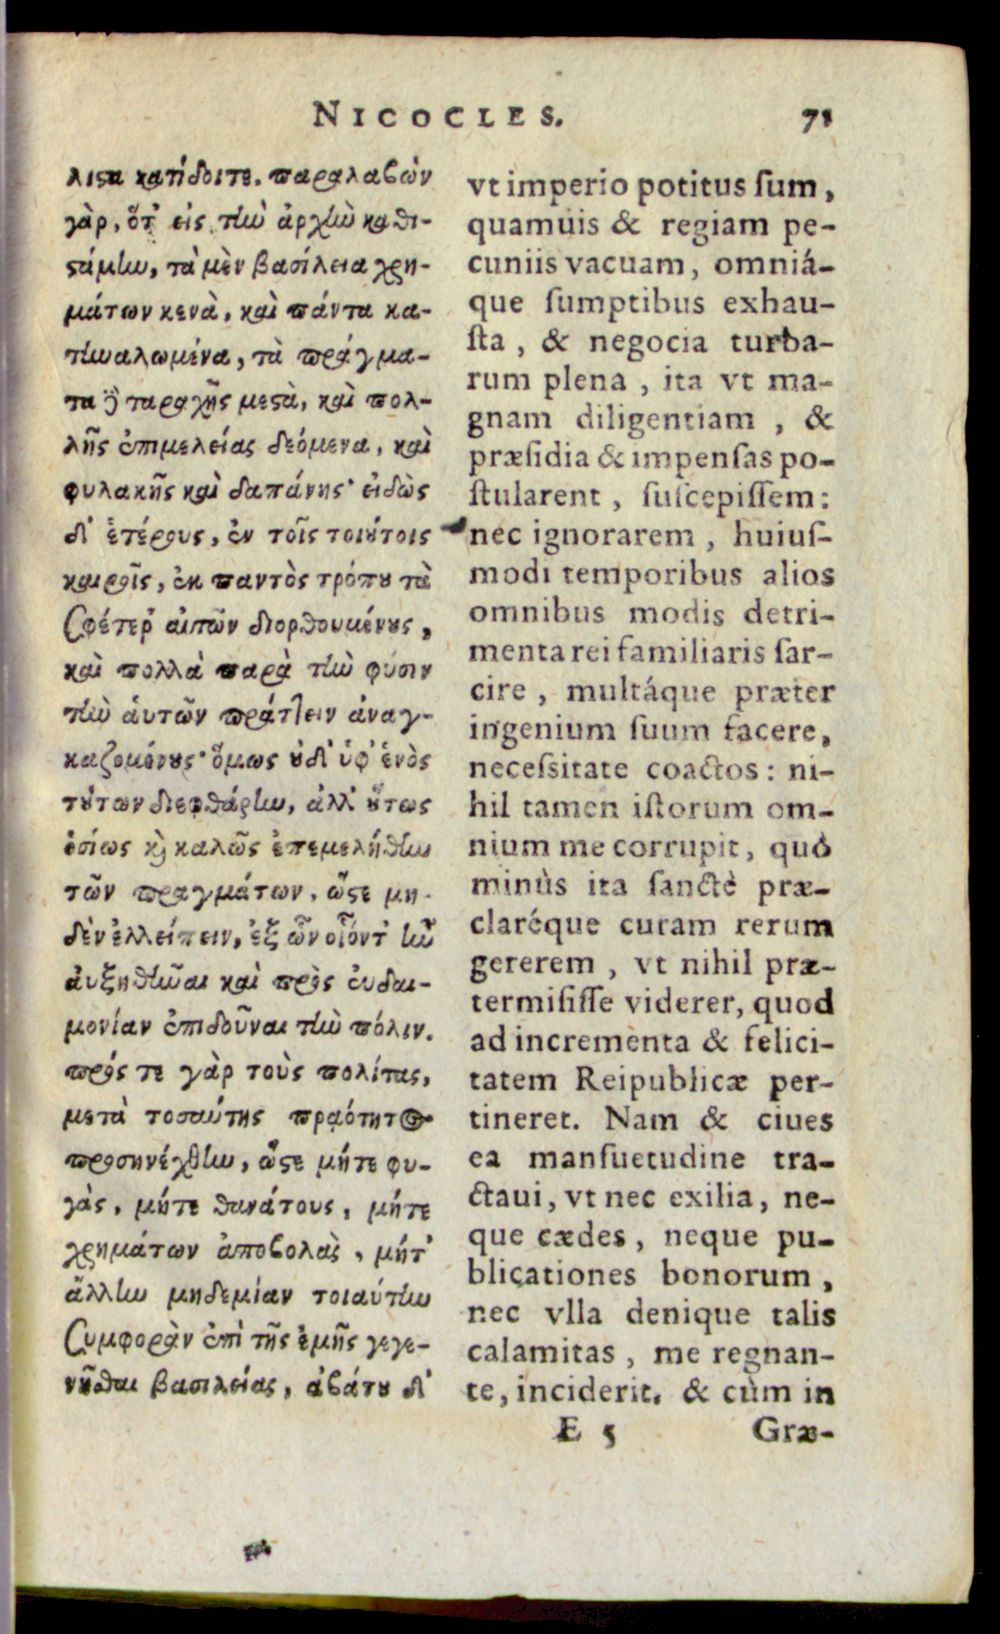 NICOCLES. 71
λιϛα κατίδοιτε. παραλαβὼν
γὰρ, ὅτ' εἰς τὴν ἀρχὴν καθι-
ϛάμην, τὰ μὲν βασίλεια χρη-
μάτων κενὰ, καὶ πάντα κα-
τηναλωμένα, τὰ πράγμα-
τα δὲ ταραχῆς μεϛὰ, καὶ πολ-
λῆς ἐπιμελείας δεόμενα, καὶ
φυλακῆς καὶ δαπάνης· εἰδὼς
δ' ἑτέρους, ἐν τοῖς τοιούτοις
καιροῖς, ἐκ παντὸς τρόπου τὰ
σφέτερ' αὐτῶν διορθουμένους,
καὶ πολλὰ παρὰ τὴν φύσιν
τὴν ἁυτῶν πράττειν ἀναγ-
καζομένους· ὅμως οὐδ' ὑφ' ἑνὸς
τούτων διεφθάρην, ἀλλ' οὕτως
ὁσίως καὶ καλῶς ἐπεμελήθην
τῶν πραγμάτων, ὥϛε μη-
δὲν ἐλλείπειν, ἐξ ὧν οἷόντ' ἦν
ἀυξηθῆναι καὶ πρὸς ἐυδαι-
μονίαν ἐπιδοῦναι τὴν πόλιν.
πρός τε γὰρ τοὺς πολίτας,
μετὰ τοσαύτης πραότητος
προσηνέχθην, ὥϛε μήτε φυ-
γὰς, μήτε θανάτους, μήτε
χρημάτων ἀποβολὰς, μήτ'
ἄλλην μηδεμίαν τοιαύτην
συμφορὰν ἐπὶ τῆς ἐμῆς γεγε-
νῆσθαι βασιλείας, ἀβάτου δ'
vt imperio potitus ſum,
quamuis & regiam pe-
cuniis vacuam, omniá-
que ſumptibus exhau-
ſta, & negocia turba-
rum plena, ita vt ma-
gnam diligentiam, &
præſidia & impenſas po-
ſtularent, ſuſcepiſſem:
nec ignorarem, huiuſ-
modi temporibus alios
omnibus modis detri-
menta rei familiaris ſar-
cire, multáque præter
ingenium ſuum facere,
neceſsitate coactos: ni-
hil tamen iſtorum om-
nium me corrupit, quò
minùs ita ſanctè præ-
claréque curam rerum
gererem, vt nihil præ-
termiſiſſe viderer, quod
ad incrementa & felici-
tatem Reipublicæ per-
tineret. Nam & ciues
ea manſuetudine tra-
ctaui, vt nec exilia, ne-
que cædes, neque pu-
blicationes bonorum,
nec vlla denique talis
calamitas, me regnan-
te, inciderit. & cùm in
E 5 Græ-